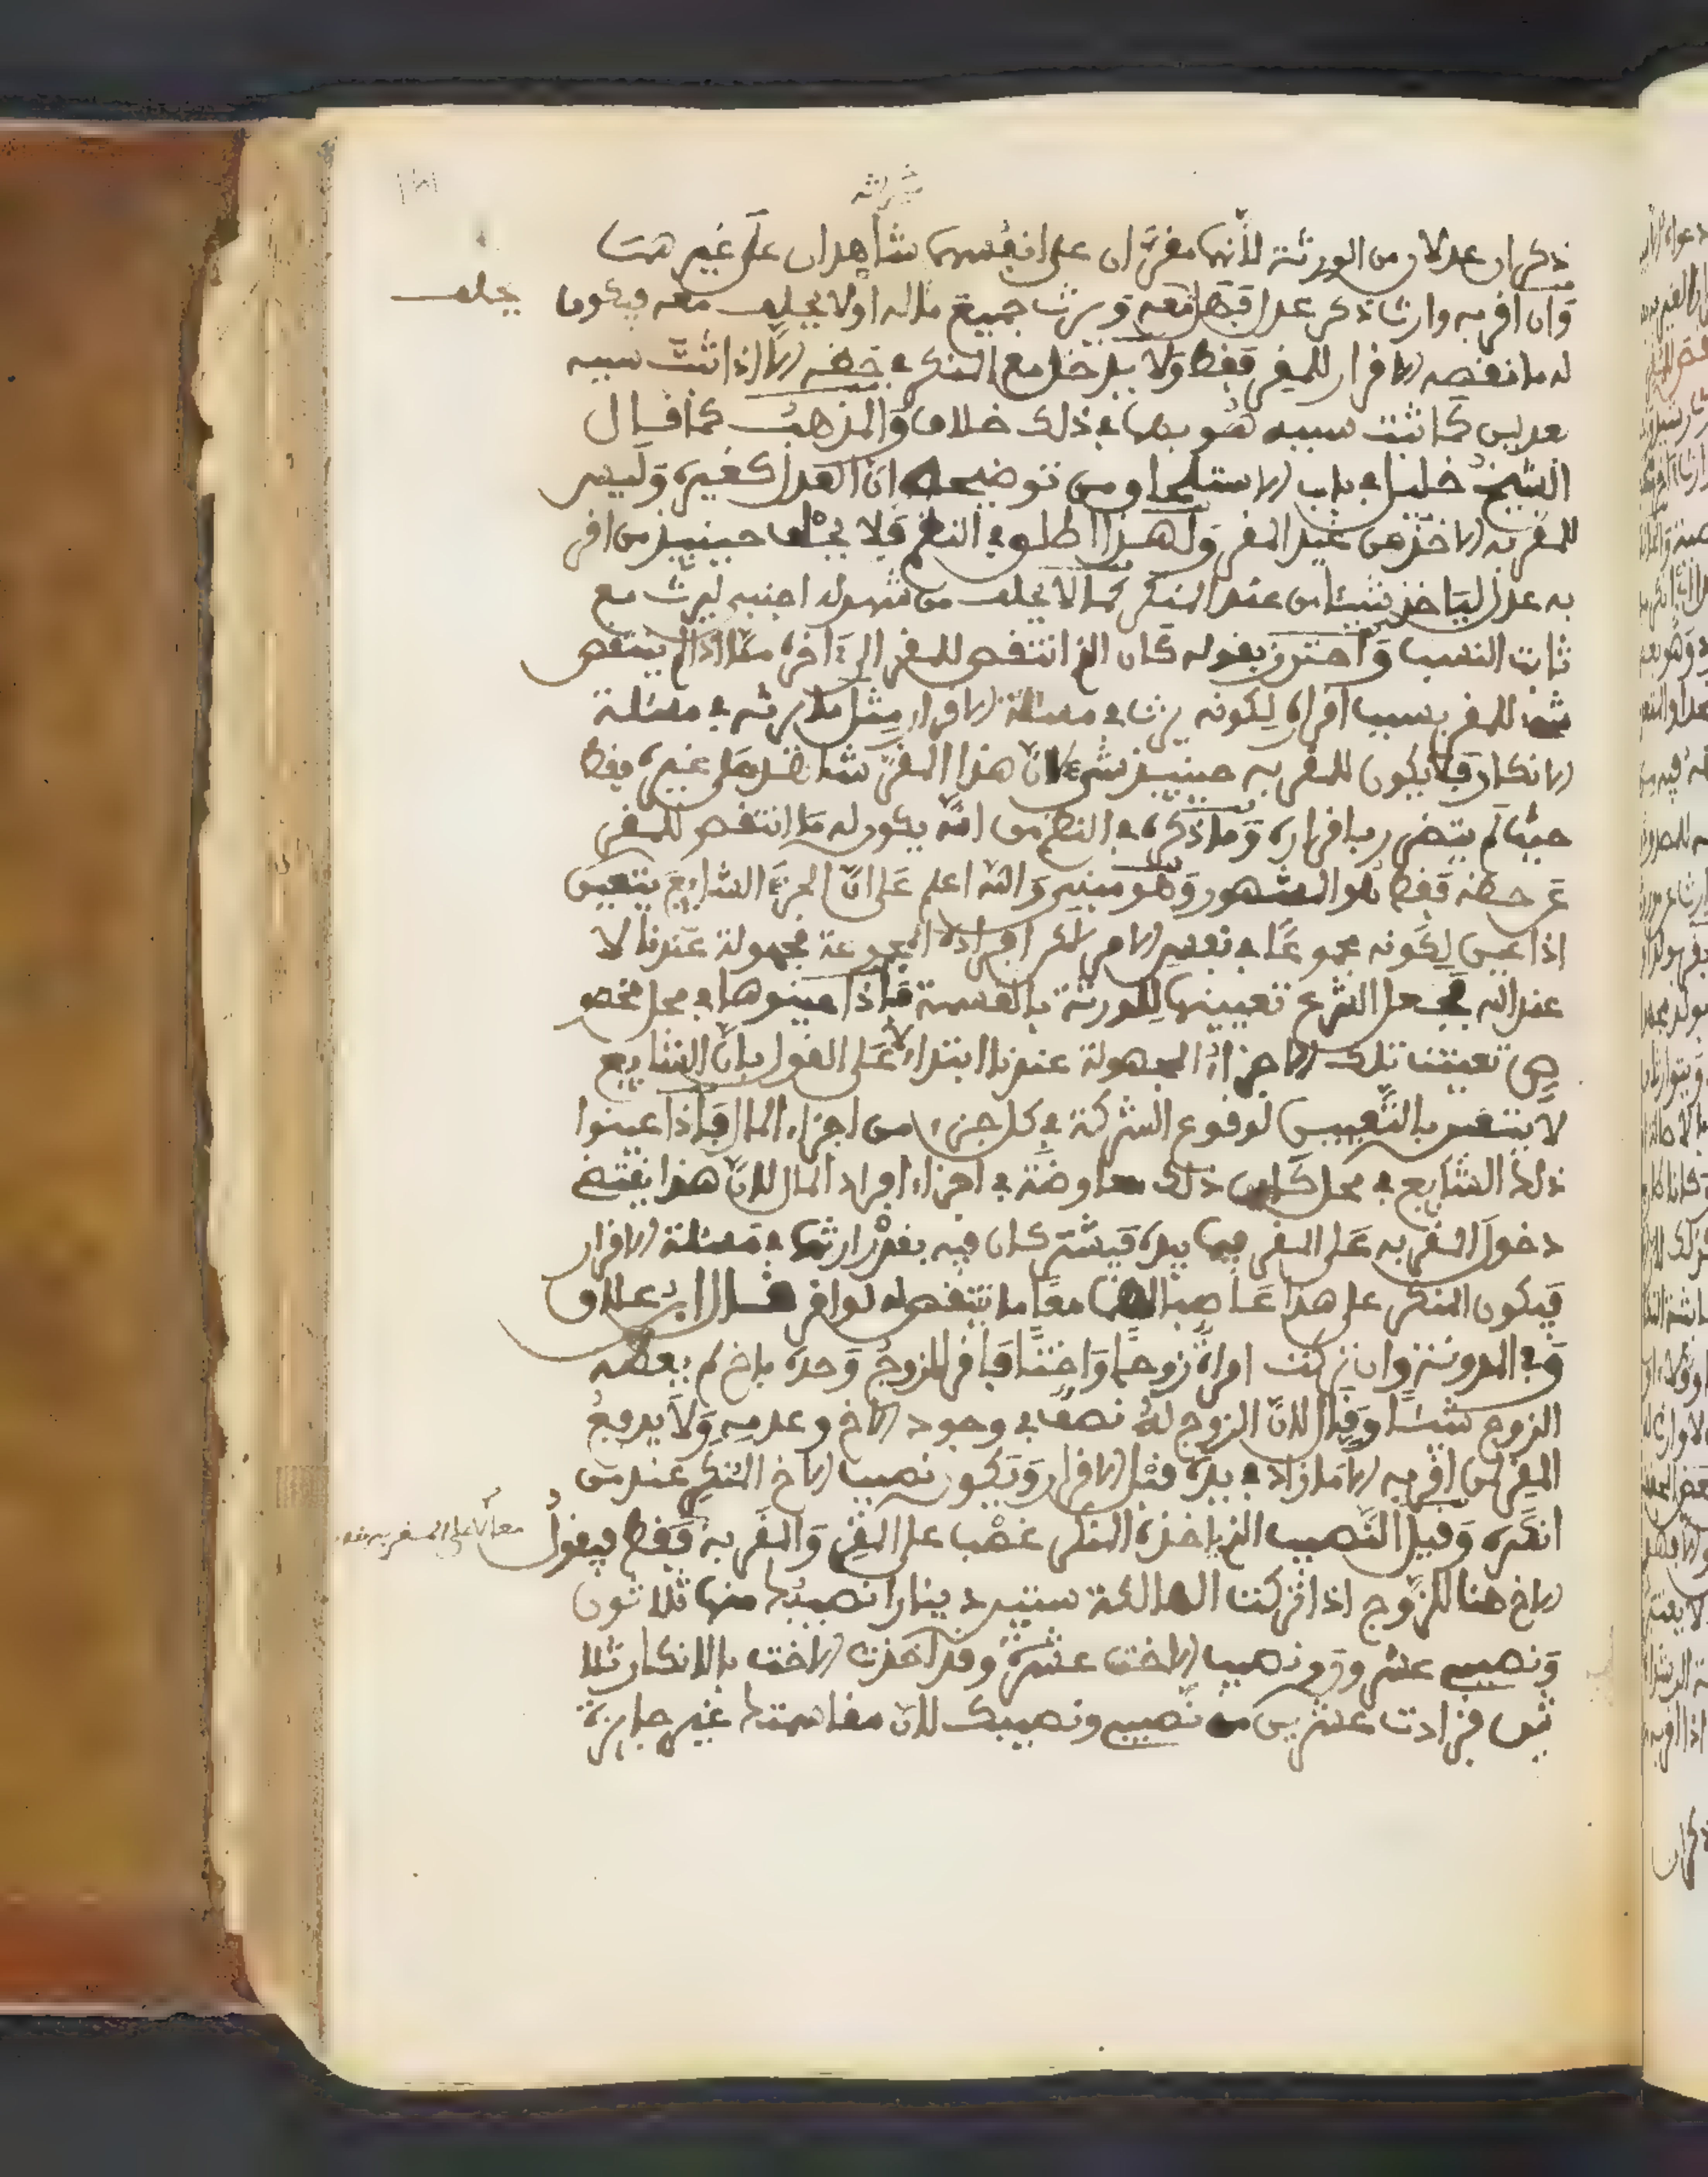 ذكران عدلان من الورثة لأنهما مقران على انفسهما شاهدان على غيرهما
وان اقر به وارث ذكر عدل فهل معه ويرث جميع ماله او لا يحلف معه فيكون
يحلف
له ما نقصه الاقرار للمقر فقط ولا يدخل مع المنكر في حظه الا اذا ثبت سببه
بعدلين كما ثبت سببه هو بهما في ذلك خلاف والمذهب كما قال
الشيخ خليل في باب الاستلحاق ومن توضيحه ان العدل كغيره وليس
للمقر به الاخذ من غير المقر ولهذا اطلق في النظم فلا يحلف حينيذ من اقر
به عدل لياخذ شيئا من عند المنكر كما لا يحلف من شهد له اجنبي ليرث مع
ثابت النسب واحترز بقوله كان الخ انتقص للمقر الى اخره مما اذا لم ينتقص
شيء للمقر بسبب اقراره لكونه يرث في مسئلة الاقرار مثل ما يرثه في مسئلة
الانكار فلا يكون للمقر به حينيذ شيء لان هذا المقر شاهد على غيره فقط
حيث لم يتضرر باقراره وما ذكره في النظم من انه يكون له ما انتقص للمقر
من حظه فقط هو المشهور وهو مبني والله اعلم على ان الجزء الشايع يتعين
اذا عين لكونه مجموعا في نفس الامر لاكن افراده المجموعة مجهولة عندنا لا
عند الله فجعل الشرع تعيينها للورثة بالقسمة فاذا عينوها في محل مخصوص
تعينت تلك الاجزاء المجهولة عندنا ابتداء لا على القول بان الشايع
لا يتعين بالتعيين لوقوع الشركة في كل جزء من اجزاء المال فاذا عينوا
ذلك الشايع في محل كان ذلك معاوضة في اجزاء افراد المال لان هذا يقتضي
دخول المقر به على المقر فيما بيده فيشتركان فيه بقدر ارثهما في مسئلة الاقرار
فيكون المنكر على هذا غاصبا لهما معا ما ينتقص له لو اقر قال ابن علاق
وفي المدونة وان تركت امراة زوجا واختا فاقر الزوج وحده باخ لم يعطه
الزوج شيئا وقال لان الزوج له نصف في وجود الاخ وعدمه ولا يدفع
المقر لمن اقر به الا ما زاد في يده قبل الاقرار ويكون نصيب الاخ المنكر عند من
انكره وقيل النصيب الذي اخذه المنكر غصب على المقر والمقر به فقط فيقول
معا لا على المقر به فقط
الاخ هنا للزوج اذا تركت الهالكة ستين دينارا نصيبك منها ثلاثون
ونصيبي عشرون ونصيب الاخت عشرة وقد اخذت الاخت بالانكار ثلا
ثين فزادت عشرين من نصيبي ونصيبك لان مقاسمتك غير جايزة